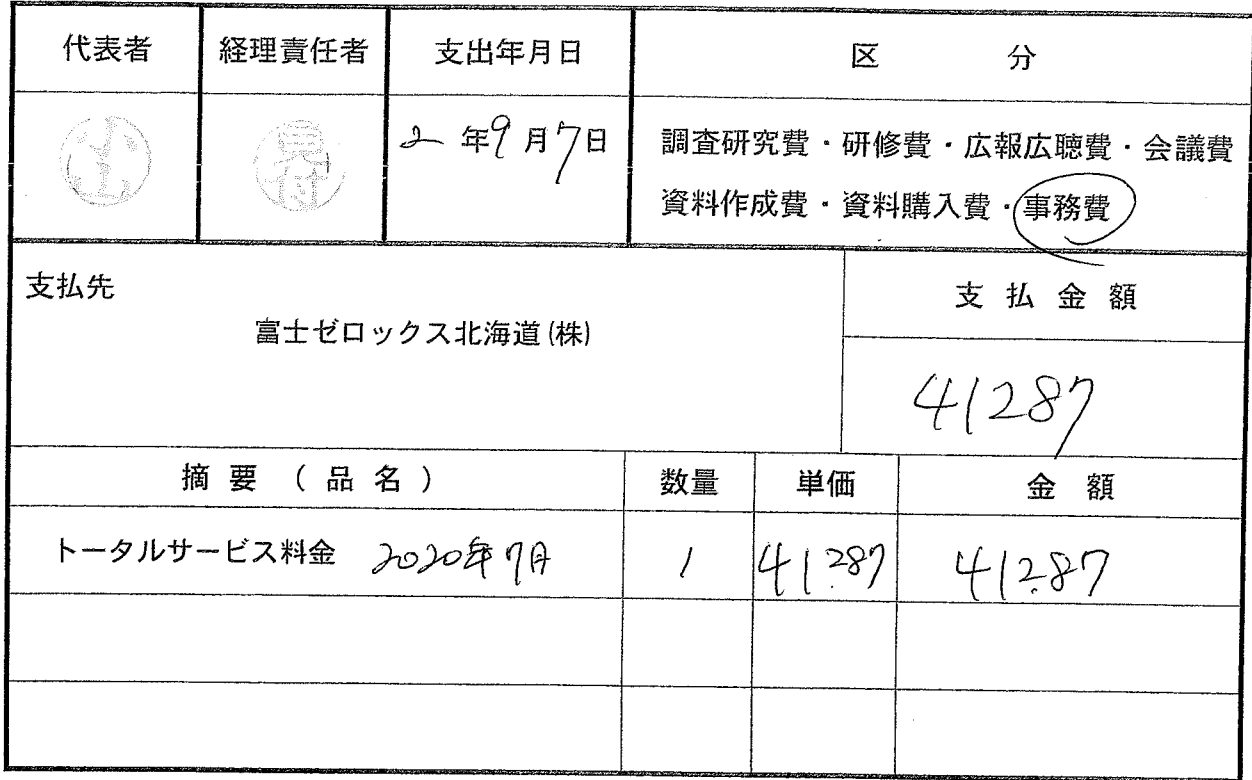 代表者 経理責任者 支出年月日 区 分
見付 2年9月7日 調査研究費・研修費・広報広聴費・会議費
資料作成費・資料購入費・事務費
支払先 支払金額
富士ゼロックス北海道(株)
41287
摘要(品名) 数量 単価 金額
トータルサービス料金 2020年7月 1 41287 41287